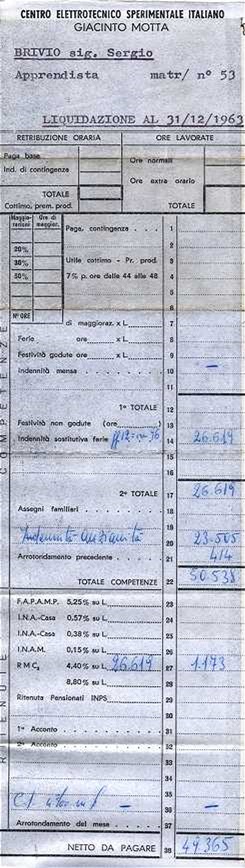 CENTRO ELETTROTECNICO SPERIMENTALE ITALIANO
GIACINTO MOTTA
BRIVIO sig. Sergio
Apprendista matr/ n° 53
LIQUIDAZIONE AL 31/12/1963
RETRIBUZIONE ORARIA ORE LAVORATE
Paga base
Ind. di contingenza
Ore normali
Ore extra orario
TOTALE
Cottimo, prem. prod. TOTALE
Maggiorazioni Ore di maggior.
Paga, contingenza 1
2
20% 3
30% Utile cottimo - Pr. prod. 4
50% 7% p. ore dalle 44 alle 48 5
6
N° ORE
di maggioraz. x L. 7
Ferie ore x L. 8
Festività godute ore x L. 9
Indennità mensa 10 —
11
1° TOTALE 12
Festività non godute (ore ) 13
Indennità sostitutiva ferie 14 26.619
15
16
2° TOTALE 17 26.619
Assegni familiari 18
19
Indennità anzianità 20 23.505
Arrotondamento precedente 21 414
TOTALE COMPETENZE 22 50.538
COMPETENZE
F.A.P.A.M.P. 5,25% su L. 23
I.N.A.-Casa 0,57% su L. 24
I.N.A.-Casa 0,38% su L. 25
I.N.A.M. 0,15% su L. 26
R M C 4,40% su L. 26.619 27 1.173
8,80% su L. 28
Ritenuta Pensionati INPS 29
30
1° Acconto 31
2° Acconto 32
33
34
35
— 36 —
Arrotondamento del mese 37
NETTO DA PAGARE 38 49.365